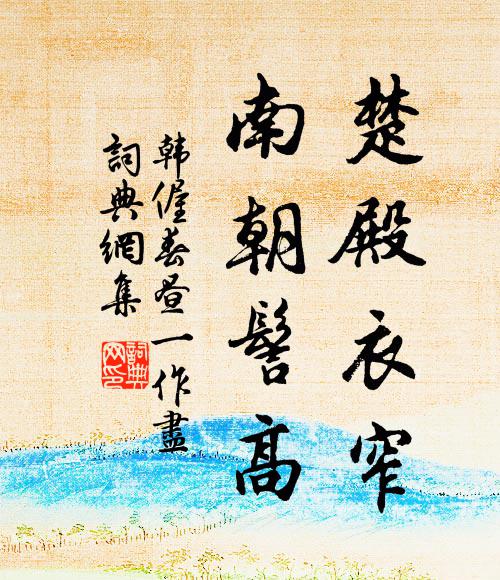 楚殿衣窄
南朝髻高
韩偓春昼一作盡
詞典網集
詞典
网印